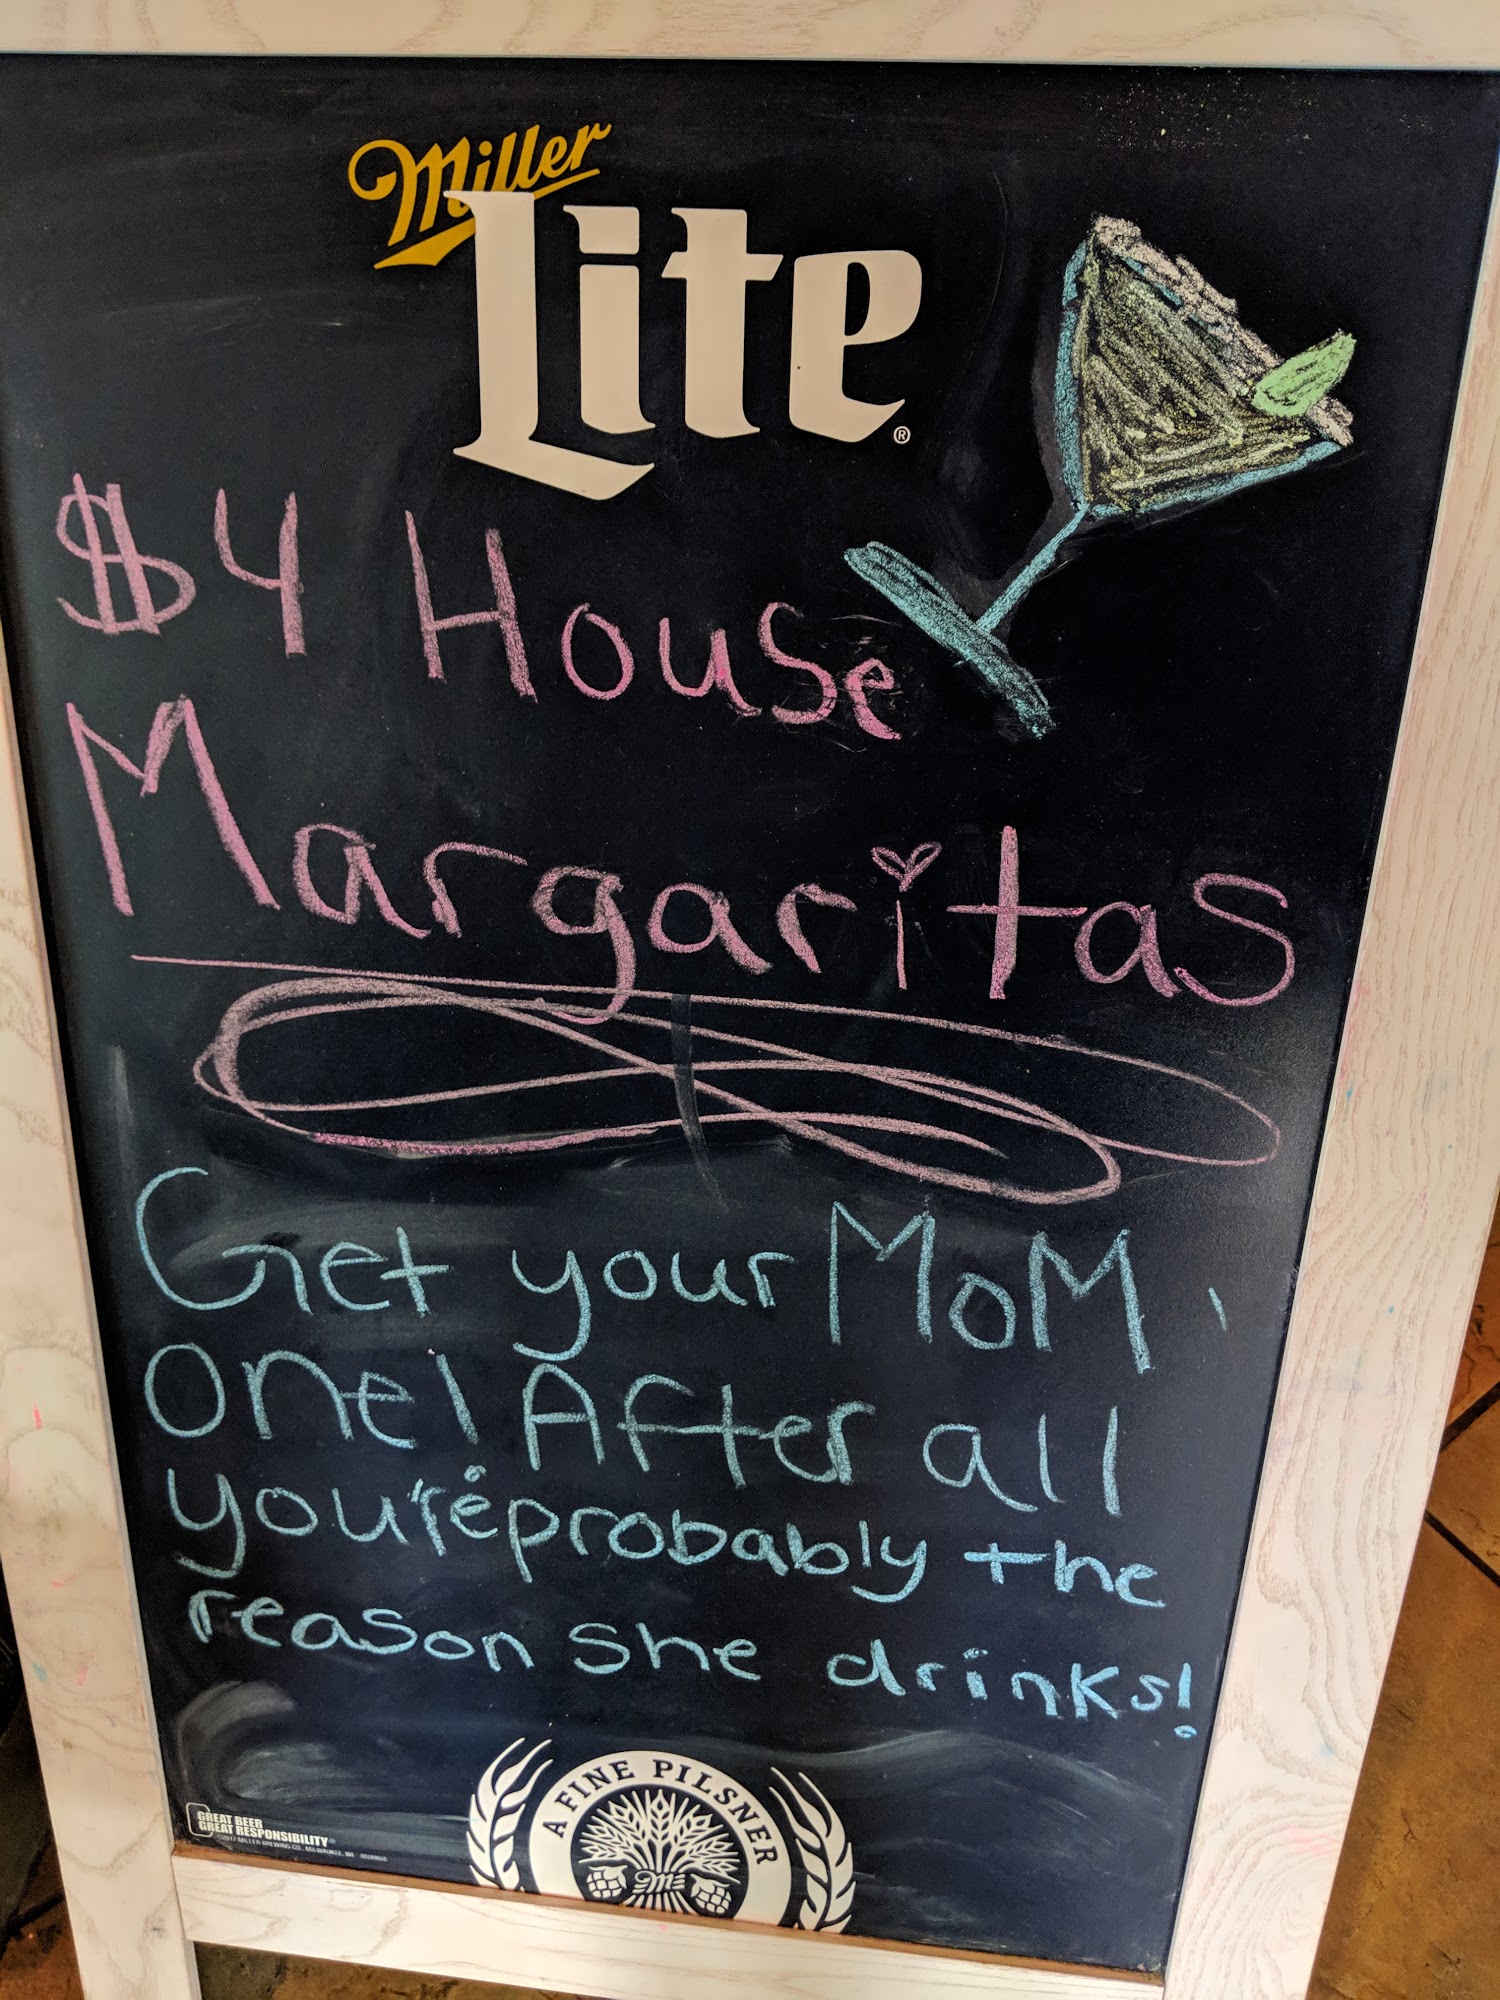 Miller
Lite®
$4 House
Margaritas
Get your MoM
one! After all
you're probably the
reason she drinks!
A FINE PILSNER
GREAT BEER
GREAT RESPONSIBILITY®
©2017 MILLER BREWING CO., MILWAUKEE, WI